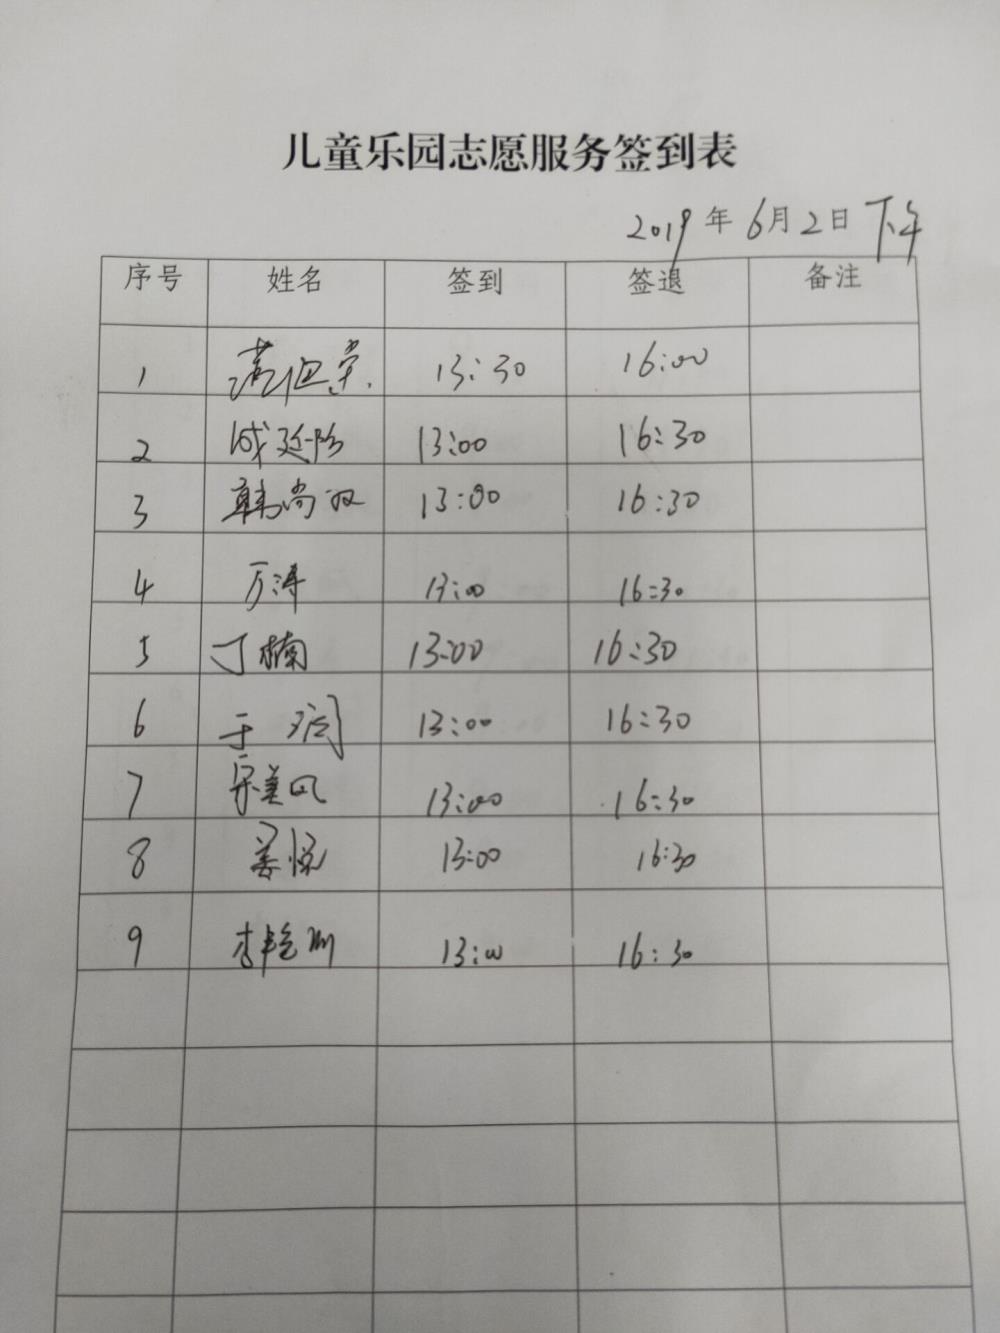 儿童乐园志愿服务签到表
2019年6月2日 下午
序号 姓名 签到 签退 备注
1 13:30 16:00
2 成延 13:00 16:30
3 韩尚双 13:00 16:30
4 万涛 13:00 16:30
5 丁楠 13:00 16:30
6 于 13:00 16:30
7 宋美凤 13:00 16:30
8 姜悦 13:00 16:30
9 李艳 13:00 16:30